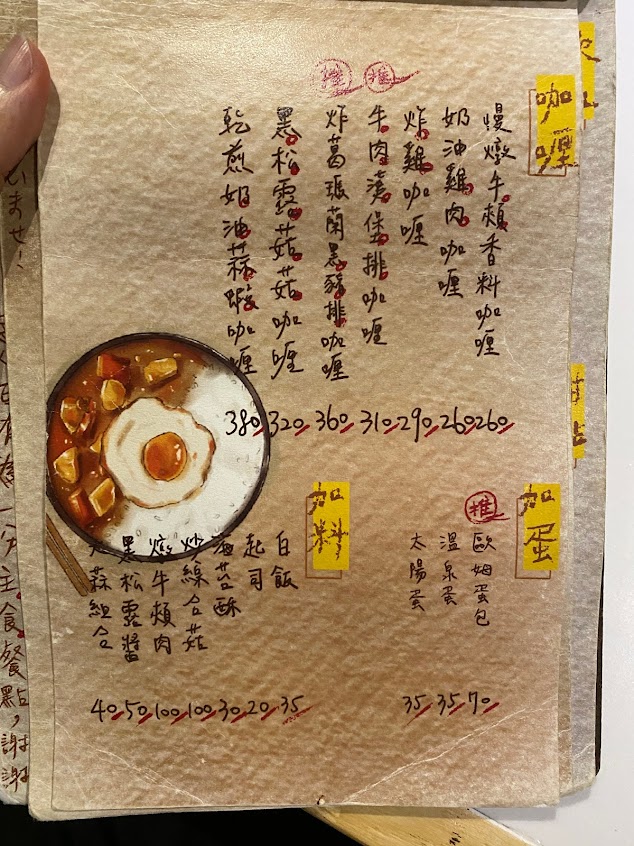 咖哩
慢燉牛頰香料咖哩
奶油雞肉咖哩
炸雞咖哩
推
牛肉漢堡排咖哩
推
炸葛瑪蘭黑豬排咖哩
黑松露菇菇咖哩
乾煎奶油蒜蝦咖哩
260
260
290
310
360
320
380
加蛋
推
歐姆蛋包
溫泉蛋
太陽蛋
70
35
35
加料
白飯
起司
海苔酥
炒綜合菇
燉牛頰肉
黑松露醬
蒜組合
35
20
30
100
100
50
40
いませ!
一分主食餐點,謝謝